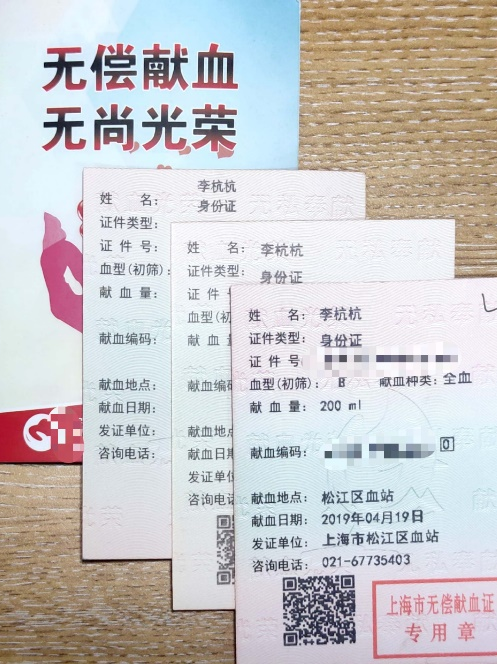 无偿献血
无尚光荣
姓 名： 李杭杭
证件类型： 身份证
证 件 号：
血型(初筛)：
献 血 量：
献血编码：
献血地点：
献血日期：
发证单位：
咨询电话：
姓 名： 李杭杭
证件类型： 身份证
证 件
血型(初
献 血
献血编码：
献血地
献血日
发证单
咨询电
姓 名： 李杭杭
证件类型： 身份证
证 件 号
血型(初筛)： B 献血种类：全血
献 血 量： 200 ml
献血编码： 0
献血地点： 松江区血站
献血日期： 2019年04月19日
发证单位： 上海市松江区血站
咨询电话： 021-67735403
上海市无偿献血证
专用章